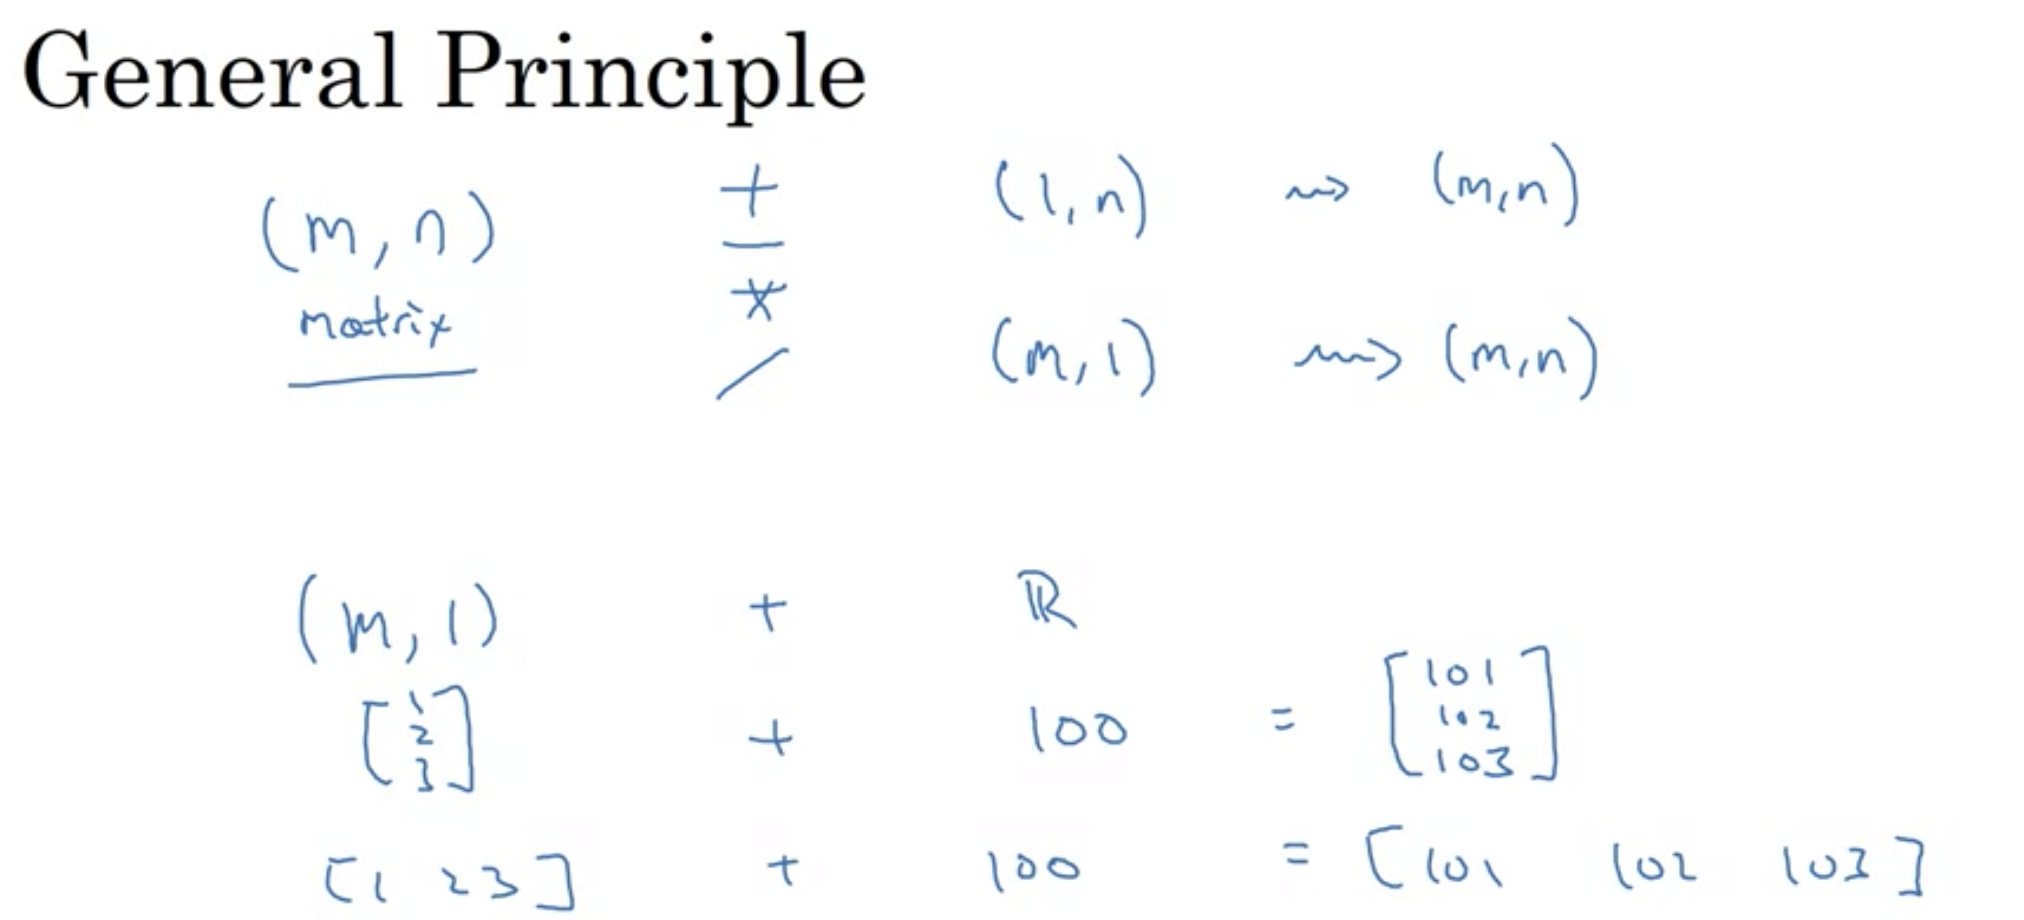 General Principle
(m, n) + (1, n) ⇝ (m, n)
−
matrix *
/ (m, 1) ⇝ (m, n)
(m, 1) + ℝ
[1 2 3] + 100 = [101 102 103]
[1 2 3] + 100 = [101 102 103]